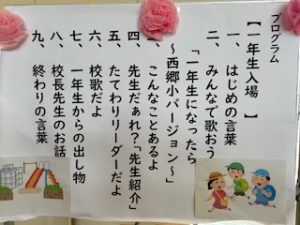 プログラム
【一年生入場 】
一、はじめの言葉
二、みんなで歌おう
「一年生になったら
～西郷小バージョン～」
三、こんなことあるよ
四、先生だぁれ?「先生紹介」
五、たてわりリーダーだよ
六、校歌だよ
七、一年生からの出し物
八、校長先生のお話
九、終わりの言葉